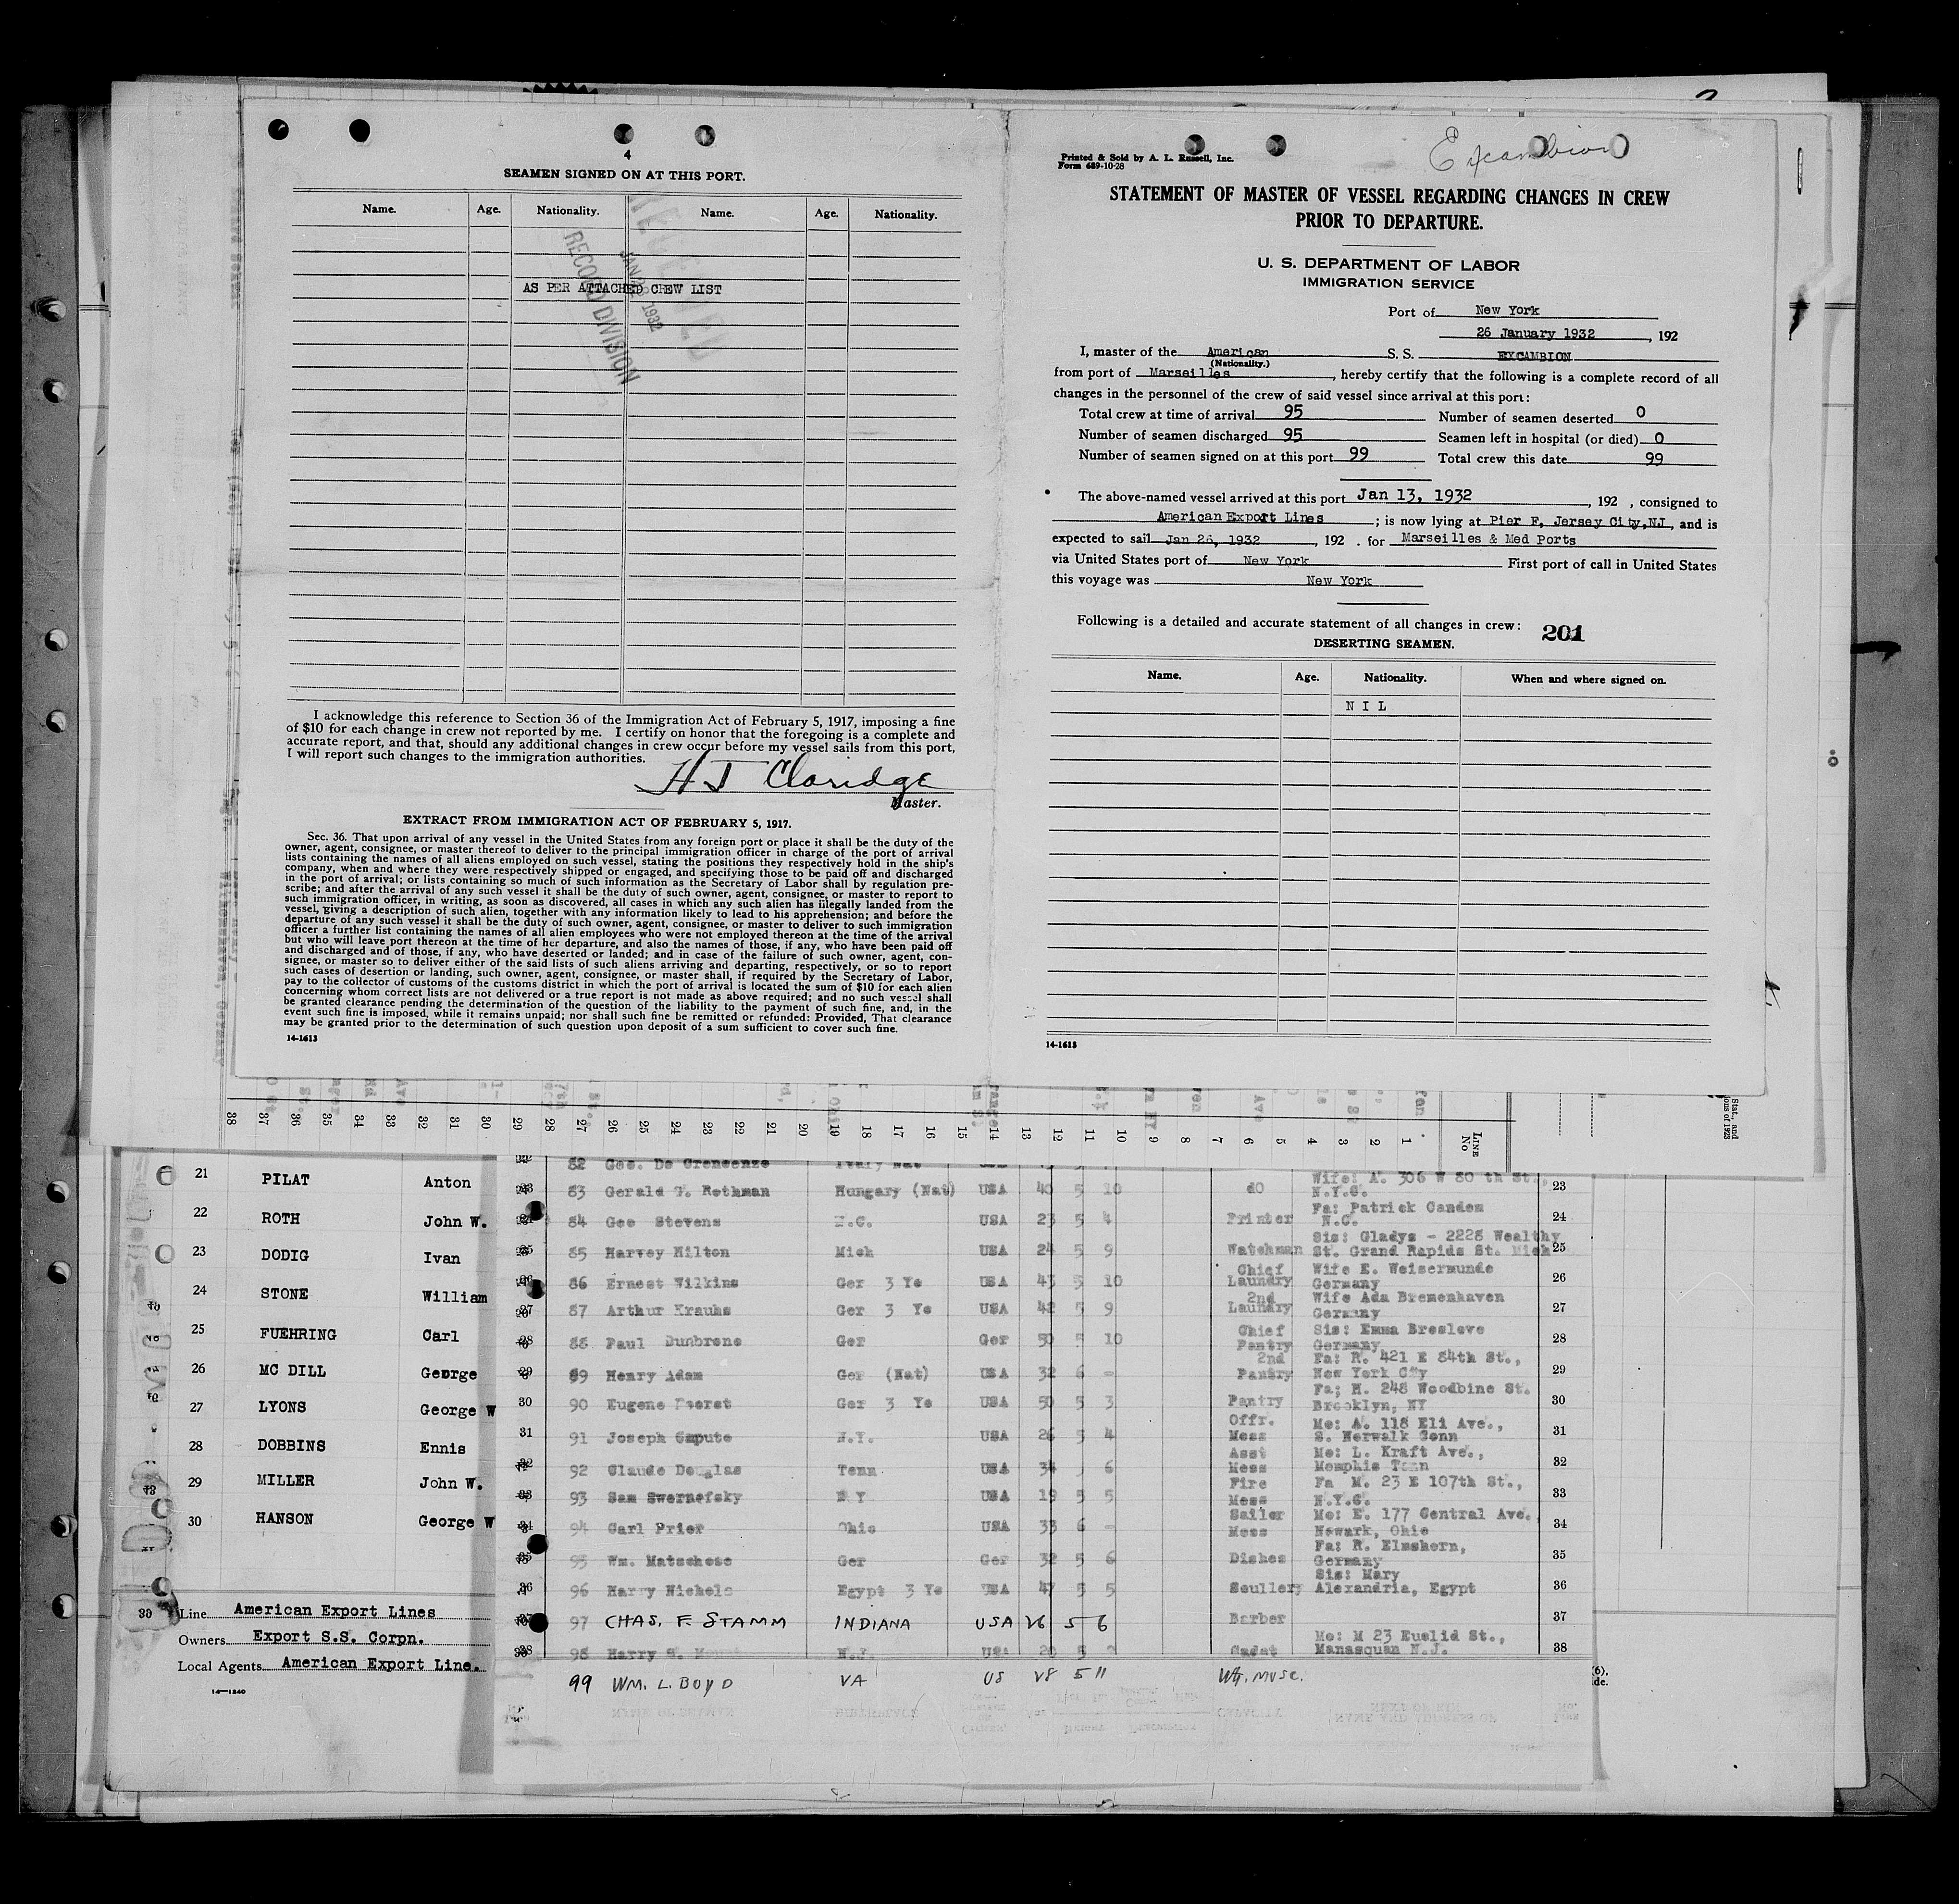 4
SEAMEN SIGNED ON AT THIS PORT.
Name. Age. Nationality. Name. Age. Nationality.
AS PER ATTACHED CREW LIST
RECORD DIVISION
1932
I acknowledge this reference to Section 36 of the Immigration Act of February 5, 1917, imposing a fine
of $10 for each change in crew not reported by me. I certify on honor that the foregoing is a complete and
accurate report, and that, should any additional changes in crew occur before my vessel sails from this port,
I will report such changes to the immigration authorities.
H J Claridge
Master.
EXTRACT FROM IMMIGRATION ACT OF FEBRUARY 5, 1917.
Sec. 36. That upon arrival of any vessel in the United States from any foreign port or place it shall be the duty of the
owner, agent, consignee, or master thereof to deliver to the principal immigration officer in charge of the port of arrival
lists containing the names of all aliens employed on such vessel, stating the positions they respectively hold in the ship's
company, when and where they were respectively shipped or engaged, and specifying those to be paid off and discharged
in the port of arrival; or lists containing so much of such information as the Secretary of Labor shall by regulation pre-
scribe; and after the arrival of any such vessel it shall be the duty of such owner, agent, consignee, or master to report to
such immigration officer, in writing, as soon as discovered, all cases in which any such alien has illegally landed from the
vessel, giving a description of such alien, together with any information likely to lead to his apprehension; and before the
departure of any such vessel it shall be the duty of such owner, agent, consignee, or master to deliver to such immigration
officer a further list containing the names of all alien employees who were not employed thereon at the time of the arrival
but who will leave port thereon at the time of her departure, and also the names of those, if any, who have been paid off
and discharged and of those, if any, who have deserted or landed; and in case of the failure of such owner, agent, con-
signee, or master so to deliver either of the said lists of such aliens arriving and departing, respectively, or so to report
such cases of desertion or landing, such owner, agent, consignee, or master shall, if required by the Secretary of Labor,
pay to the collector of customs of the customs district in which the port of arrival is located the sum of $10 for each alien
concerning whom correct lists are not delivered or a true report is not made as above required; and no such vessel shall
be granted clearance pending the determination of the question of the liability to the payment of such fine, and, in the
event such fine is imposed, while it remains unpaid; nor shall such fine be remitted or refunded: Provided, That clearance
may be granted prior to the determination of such question upon deposit of a sum sufficient to cover such fine.
14-1613
Printed & Sold by A. L. Russell, Inc.
Form 689-10-28
Excambion
STATEMENT OF MASTER OF VESSEL REGARDING CHANGES IN CREW
PRIOR TO DEPARTURE.
U. S. DEPARTMENT OF LABOR
IMMIGRATION SERVICE
Port of New York
26 January 1932, 192
I, master of the American S. S. EXCAMBION
(Nationality.)
from port of Marseilles, hereby certify that the following is a complete record of all
changes in the personnel of the crew of said vessel since arrival at this port:
Total crew at time of arrival 95 Number of seamen deserted 0
Number of seamen discharged 95 Seamen left in hospital (or died) 0
Number of seamen signed on at this port 99 Total crew this date 99
The above-named vessel arrived at this port Jan 13, 1932, 192 , consigned to
American Export Lines; is now lying at Pier F, Jersey City,NJ, and is
expected to sail Jan 26, 1932, 192 . for Marseilles & Med Ports
via United States port of New York First port of call in United States
this voyage was New York
Following is a detailed and accurate statement of all changes in crew: 201
DESERTING SEAMEN.
Name. Age. Nationality. When and where signed on.
N I L
14-1613
38 37 36 35 34 33 32 31 30 29 28 27 26 25 24 23 22 21 20 19 18 17 16 15 14 13 12 11 10 9 8 7 6 5 4 3 2 1 LINE No
21 PILAT Anton
22 ROTH John W.
23 DODIG Ivan
24 STONE William
25 FUEHRING Carl
26 MC DILL George
27 LYONS George W
28 DOBBINS Ennis
29 MILLER John W.
30 HANSON George W
Line American Export Lines
Owners Export S.S. Corpn.
Local Agents American Export Line.
14—1240
82 Geo. De Crencenzo
83 Gerald T. Rothman Hungary (Nat) USA 40 5 10 do Wife: A. 306 W 80 th St., N.Y.C. 23
84 Geo Stevens N.C. USA 23 5 4 Printer Fa: Patrick Camden N.C. 24
85 Harvey Hilton Mich USA 24 5 9 Watchman Sis: Gladys - 2228 Wealthy St. Grand Rapids St. Mich 25
86 Ernest Wilkins Ger 3 Ye USA 43 5 10 Chief Laundry Wife E. Weisermunde Germany 26
87 Arthur Krauhs Ger 3 Ye USA 42 5 9 2nd Laundry Wife Ada Bremenhaven Germany 27
88 Paul Dumbrone Ger Ger 50 5 10 Chief Pantry Sis: Emma Breslove Germany 28
89 Henry Adam Ger (Nat) USA 32 6 - 2nd Pantry Fa: R. 421 E 84th St., New York City 29
90 Eugene Ger 3 Ye USA 50 5 3 Pantry Fa; H. 248 Woodbine St. Brooklyn, NY 30
91 Joseph Capute N.Y. USA 26 5 4 Offr. Mess Mo: A. 118 Eli Ave., S. Norwalk Conn 31
92 Claude Douglas Tenn USA 34 6 Asst Mess Mo: L. Kraft Ave., Memphis Tenn 32
93 Sam Swernofsky N Y USA 19 5 5 Fire Mess Fa M. 23 E 107th St., N.Y.C. 33
94 Carl Prior Ohio USA 33 6 - Sailor Mess Mo: E. 177 Central Ave. Newark, Ohio 34
95 Wm. Matschose Ger Ger 32 5 6 Dishes Fa: R. Elmshorn, Germany 35
96 Harry Nichols Egypt 3 Ye USA 47 5 5 Scullery Sis: Mary Alexandria, Egypt 36
97 CHAS. F. STAMM INDIANA USA 26 5 6 Barber 37
98 Harry S. N.J. USA 20 5 Cadet Mo: M 23 Euclid St., Manasquan N.J. 38
99 WM. L. BOYD VA US 28 5 11 Wtr. Musc.